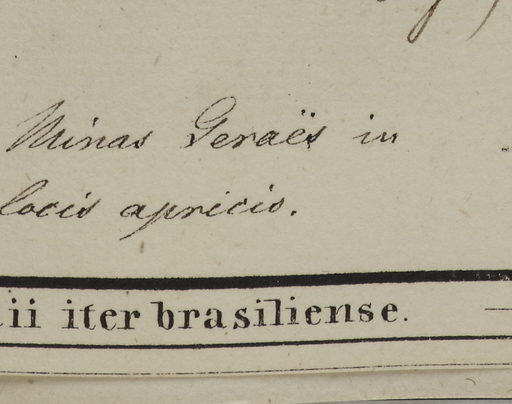 Minas Geraës in
locis apricis.
ii iter brasiliense.